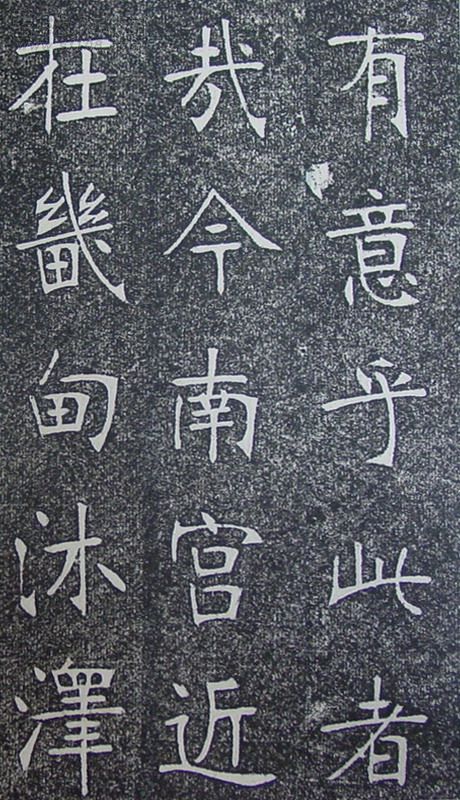 有意乎此者
哉今南宫近
在畿甸沐澤